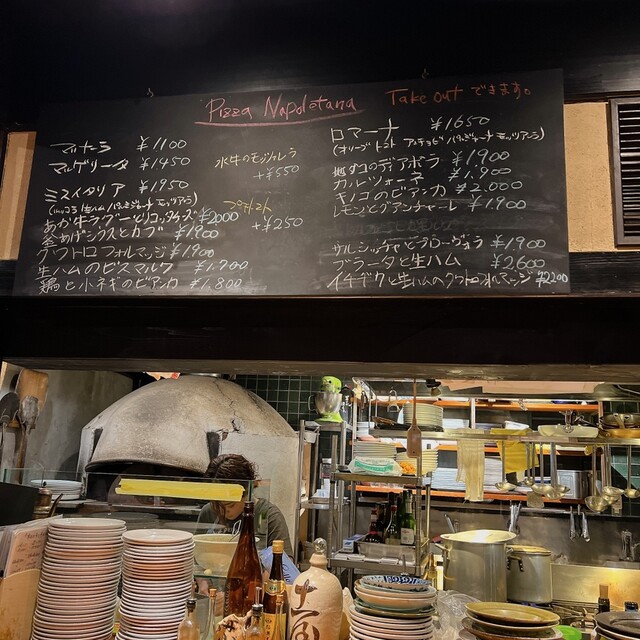 Pizza Napoletana
Take out できます。
マリナーラ ¥1100
マルゲリータ ¥1450
ミスイタリア ¥1950
(ルッコラ 生ハム パルミジャーノ モッツァレラ)
あか牛ラグーとリコッタチーズ ¥2000
釜あげシラスとカブ ¥1900
クワトロフォルマッジ ¥1900
生ハムのビスマルク ¥1,900
鶏と小ネギのビアンカ ¥1,800
水牛のモッツァレラ
+¥550
プチトマト
+¥250
ロマーナ ¥1650
(オリーブ トマト アンチョビ パルミジャーノ モッツァレラ)
地ダコのディアボラ ¥1900
カルツォーネ ¥1,900
キノコのビアンカ ¥2,000
レモンとグアンチャーレ ¥1,900
サルシッチャとプローヴォラ ¥1,900
ブラータと生ハム ¥2,600
イチヂクと生ハムのクワトロフォルマッジ ¥2200